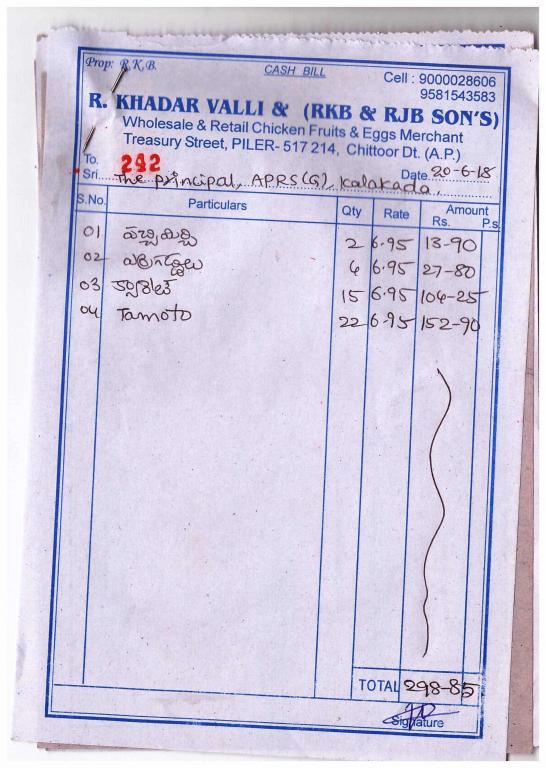 Prop: R.K.B.
CASH BILL
Cell : 9000028606
9581543583
R. KHADAR VALLI & (RKB & RJB SON'S)
Wholesale & Retail Chicken Fruits & Eggs Merchant
Treasury Street, PILER- 517 214, Chittoor Dt. (A.P.)
To. 292
Sri The principal, APRS(G), Kalakada, Date 20-6-18
S.No. Particulars Qty Rate Amount
Rs. P.s
01 పచ్చిమిర్చి 2 6.95 13-90
02 ఎర్రగడ్డలు 4 6.95 27-80
03 క్యారెట్ 15 6.95 104-25
04 Tamoto 22 6.95 152-90
TOTAL 298-85
Signature